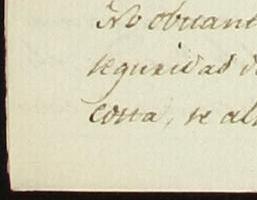 No obstant
seguridad d
costa, se al